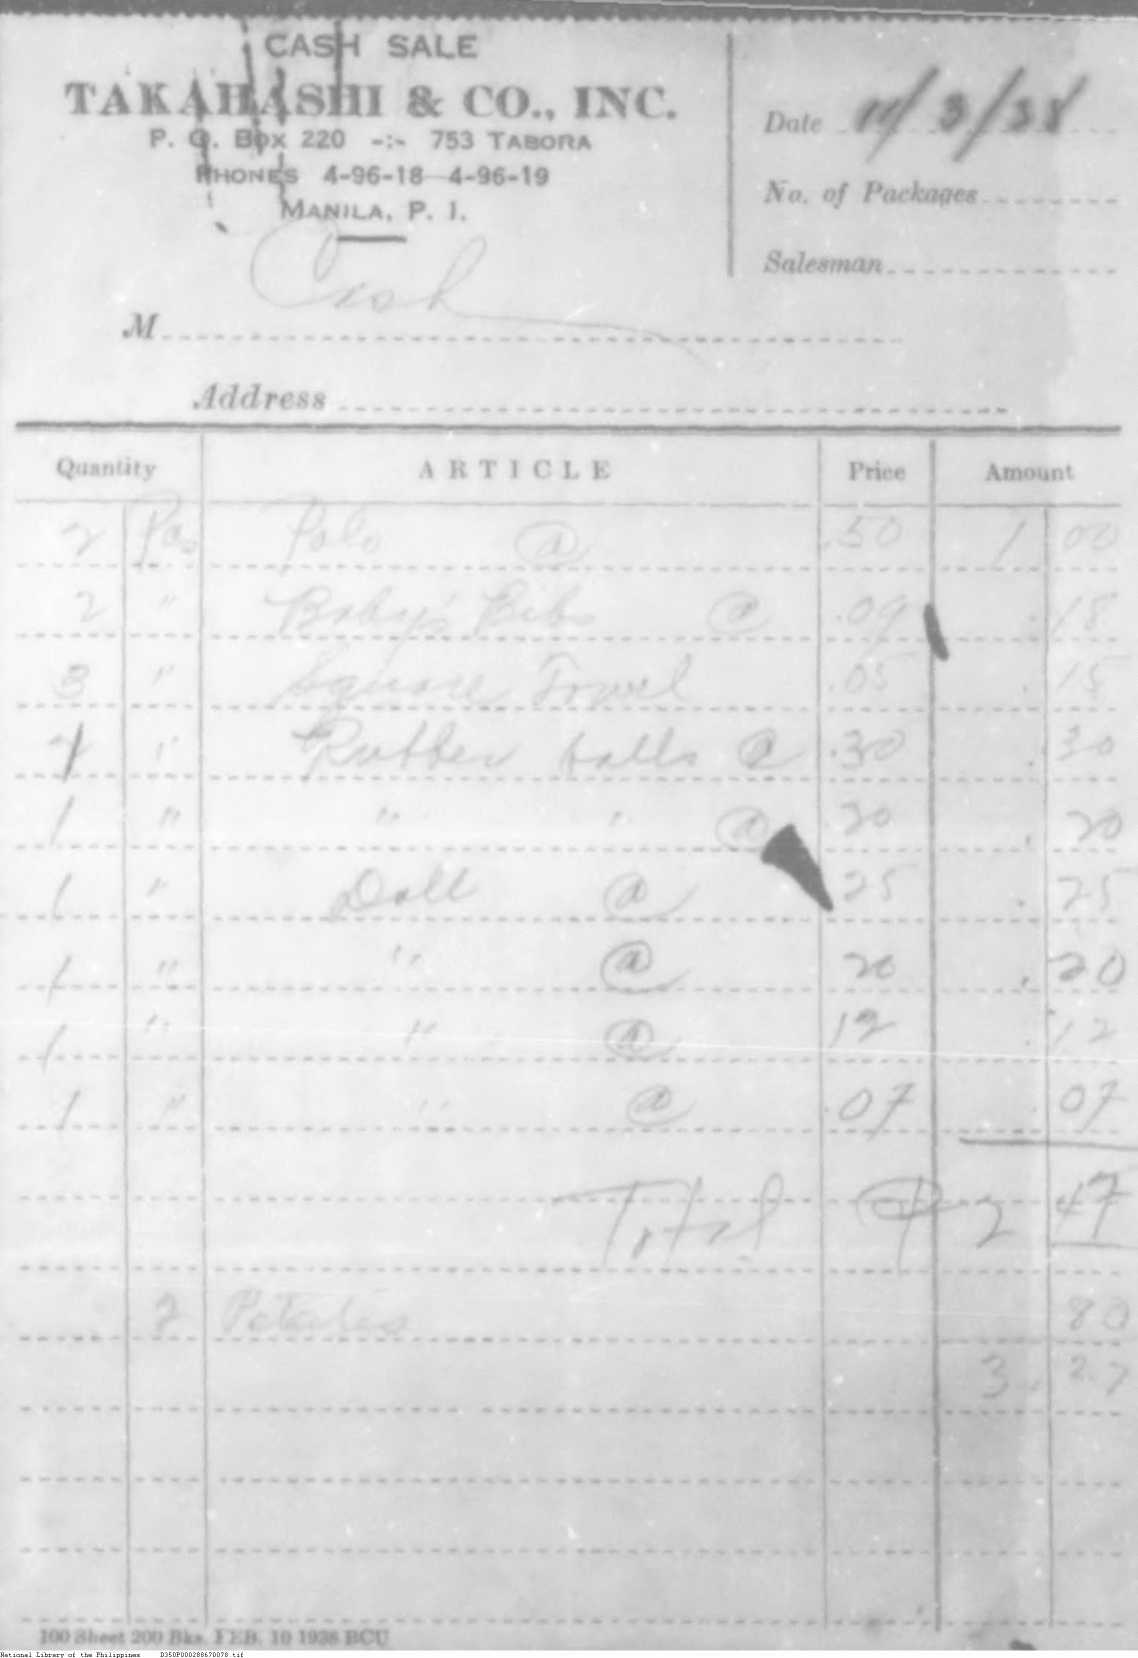 CASH SALE
TAKAHASHI & CO., INC.
P. O. Box 220 -:- 753 TABORA
PHONES 4-96-18 4-96-19
MANILA, P. I.
Date 11/3/38
No. of Packages
Salesman
M Cash
Address
Quantity ARTICLE Price Amount
2 Pcs Polo @ .50 1 00
2 " Baby's Bibs @ .09 .18
3 " Square Towel .05 .15
1 " Rubber balls @ .30 .30
1 " " " @ .20 .20
1 " Doll @ 25 .25
1 " " @ 20 .20
1 " " @ 12 .12
1 " " @ .07 .07
Total ₱ 2 47
2 Petates 80
3.27
100 Sheet 200 Bks. FEB. 10 1938 BCU
National Library of the Philippines D350P000288670078.tif